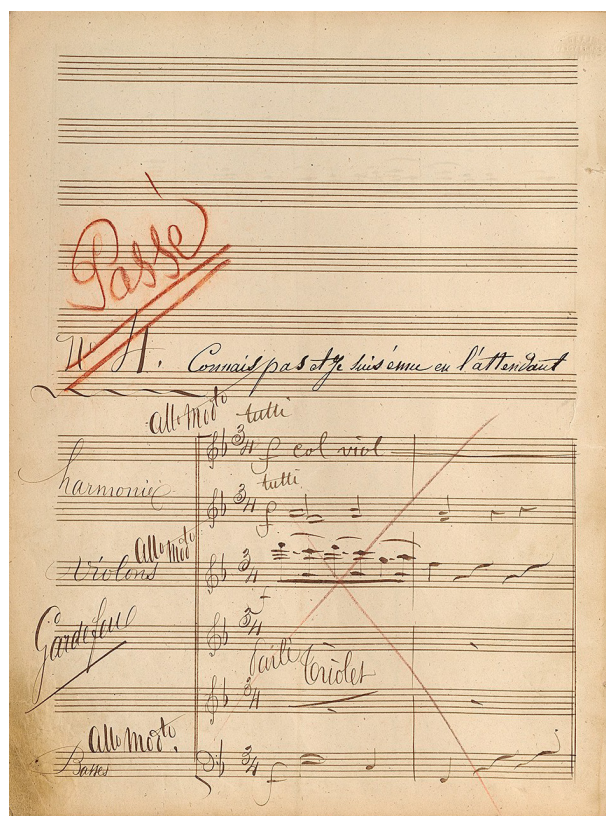 Passé
No 4. Connais pas et je suis ému en l'attendant
allo modto tutti
f col viol
harmonie
tutti
f
allo modto
Violons
f
Gardefeu
Parlé Triolet
allo modto.
Basses
f